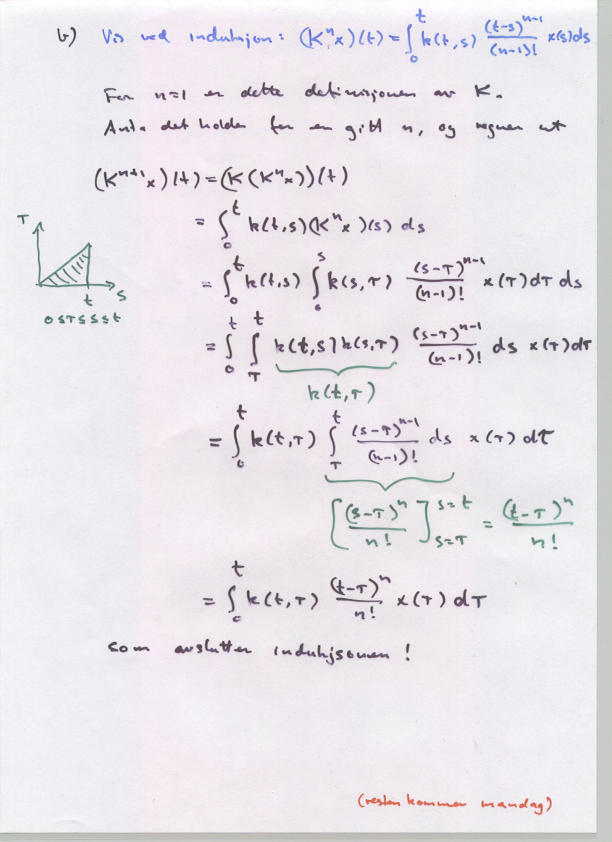 b) Vis ved induksjon: (Kⁿx)(t) = ∫₀ᵗ k(t,s) (t-s)ⁿ⁻¹/(n-1)! x(s)ds
For n=1 er dette definisjonen av K.
Anta det holder for en gitt n, og regner ut
(Kⁿ⁺¹x)(t) = (K(Kⁿx))(t)
= ∫₀ᵗ k(t,s)(Kⁿx)(s) ds
T
t
s
0≤τ≤s≤t
= ∫₀ᵗ k(t,s) ∫₀ˢ k(s,τ) (s-τ)ⁿ⁻¹/(n-1)! x(τ)dτ ds
= ∫₀ᵗ ∫_τᵗ k(t,s)k(s,τ) (s-τ)ⁿ⁻¹/(n-1)! ds x(τ)dτ
k(t,τ)
= ∫₀ᵗ k(t,τ) ∫_τᵗ (s-τ)ⁿ⁻¹/(n-1)! ds x(τ) dτ
[(s-τ)ⁿ/n!]_{s=τ}^{s=t} = (t-τ)ⁿ/n!
= ∫₀ᵗ k(t,τ) (t-τ)ⁿ/n! x(τ) dτ
som avslutter induksjonen!
(resten kommer mandag)